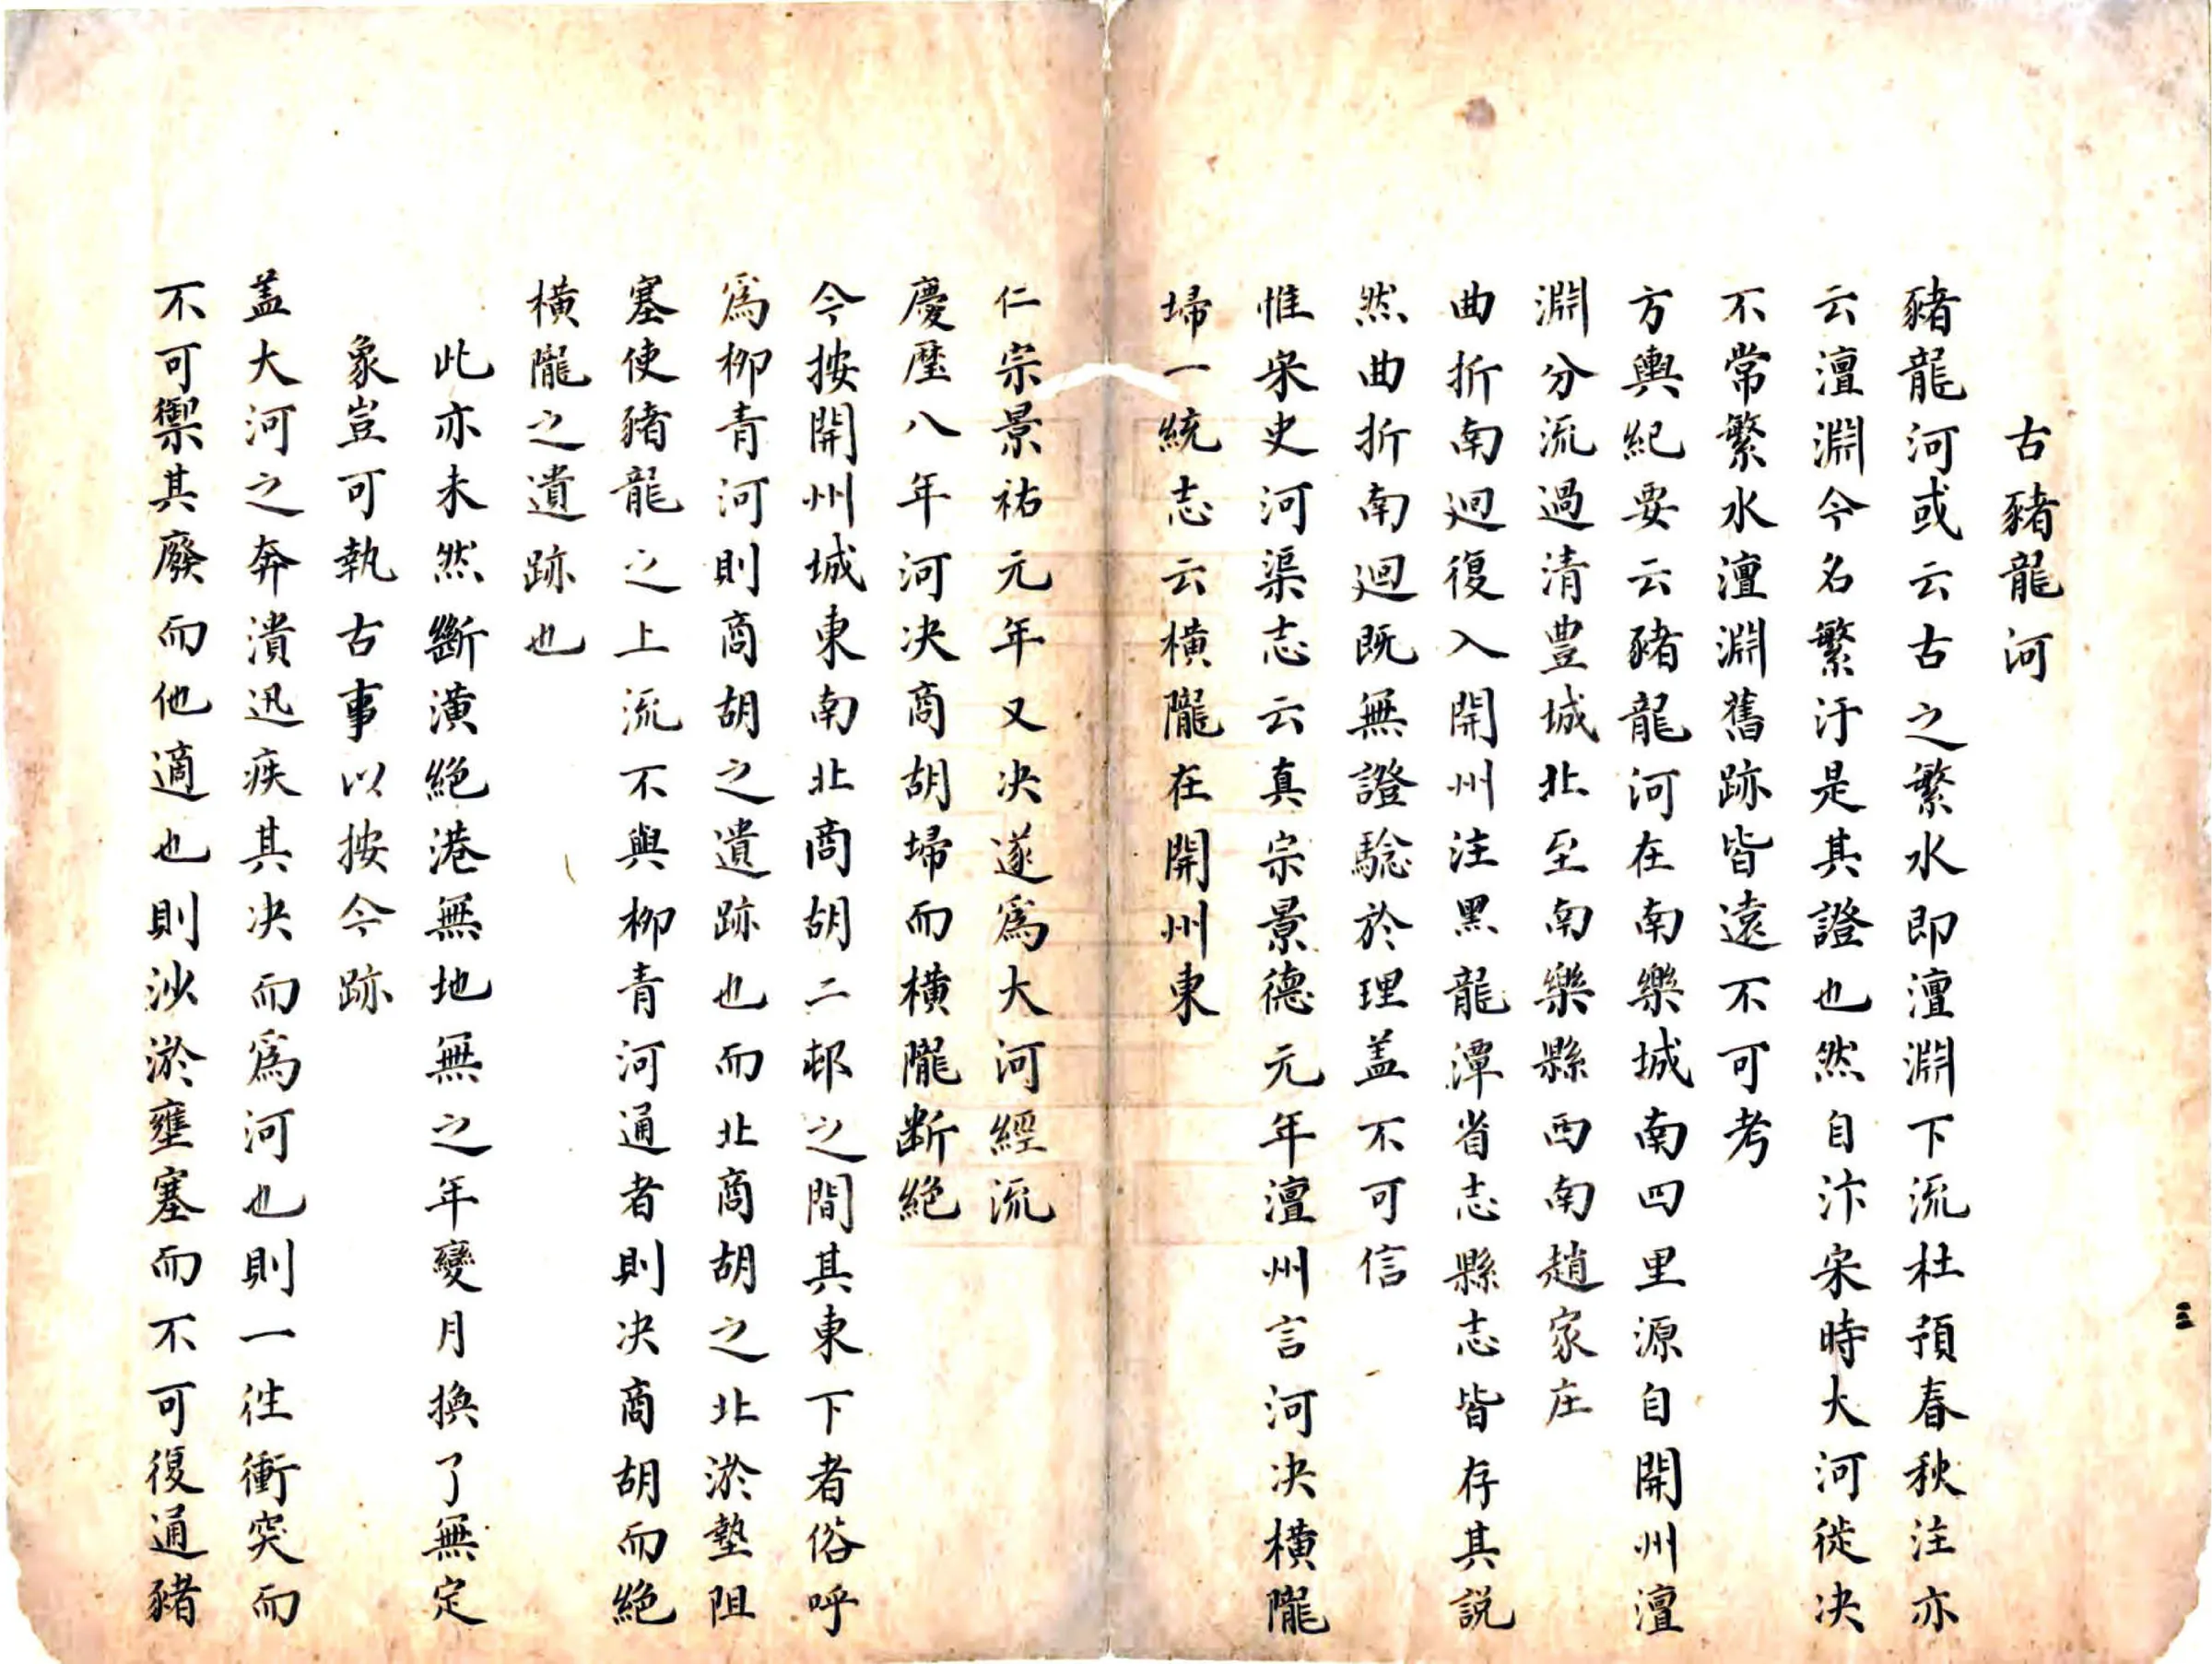 古豬龍河
豬龍河或云古之繁水即澶淵下流杜預春秋注亦
云澶淵今名繁汙是其證也然自汴宋時大河徙决
不常繁水澶淵舊跡皆遠不可考
方輿紀要云豬龍河在南樂城南四里源自開州澶
淵分流過清豊城北至南樂縣西南趙家庄
曲折南迴復入開州注黑龍潭省志縣志皆存其説
然曲折南迴既無證騐於理盖不可信
惟宋史河渠志云真宗景德元年澶州言河决横隴
埽一統志云横隴在開州東
仁宗景祐元年又决遂爲大河經流
慶歷八年河决商胡埽而横隴断絶
今按開州城東南北商胡二邨之間其東下者俗呼
爲柳青河則商胡之遺跡也而北商胡之北淤墊阻
塞使豬龍之上流不與柳青河通者則决商胡而絶
横隴之遺跡也
此亦未然斷潢絶港無地無之年變月換了無定
象豈可執古事以按今跡
盖大河之奔潰迅疾其决而爲河也則一徃衝突而
不可禦其廢而他適也則沙淤壅塞而不可復通豬